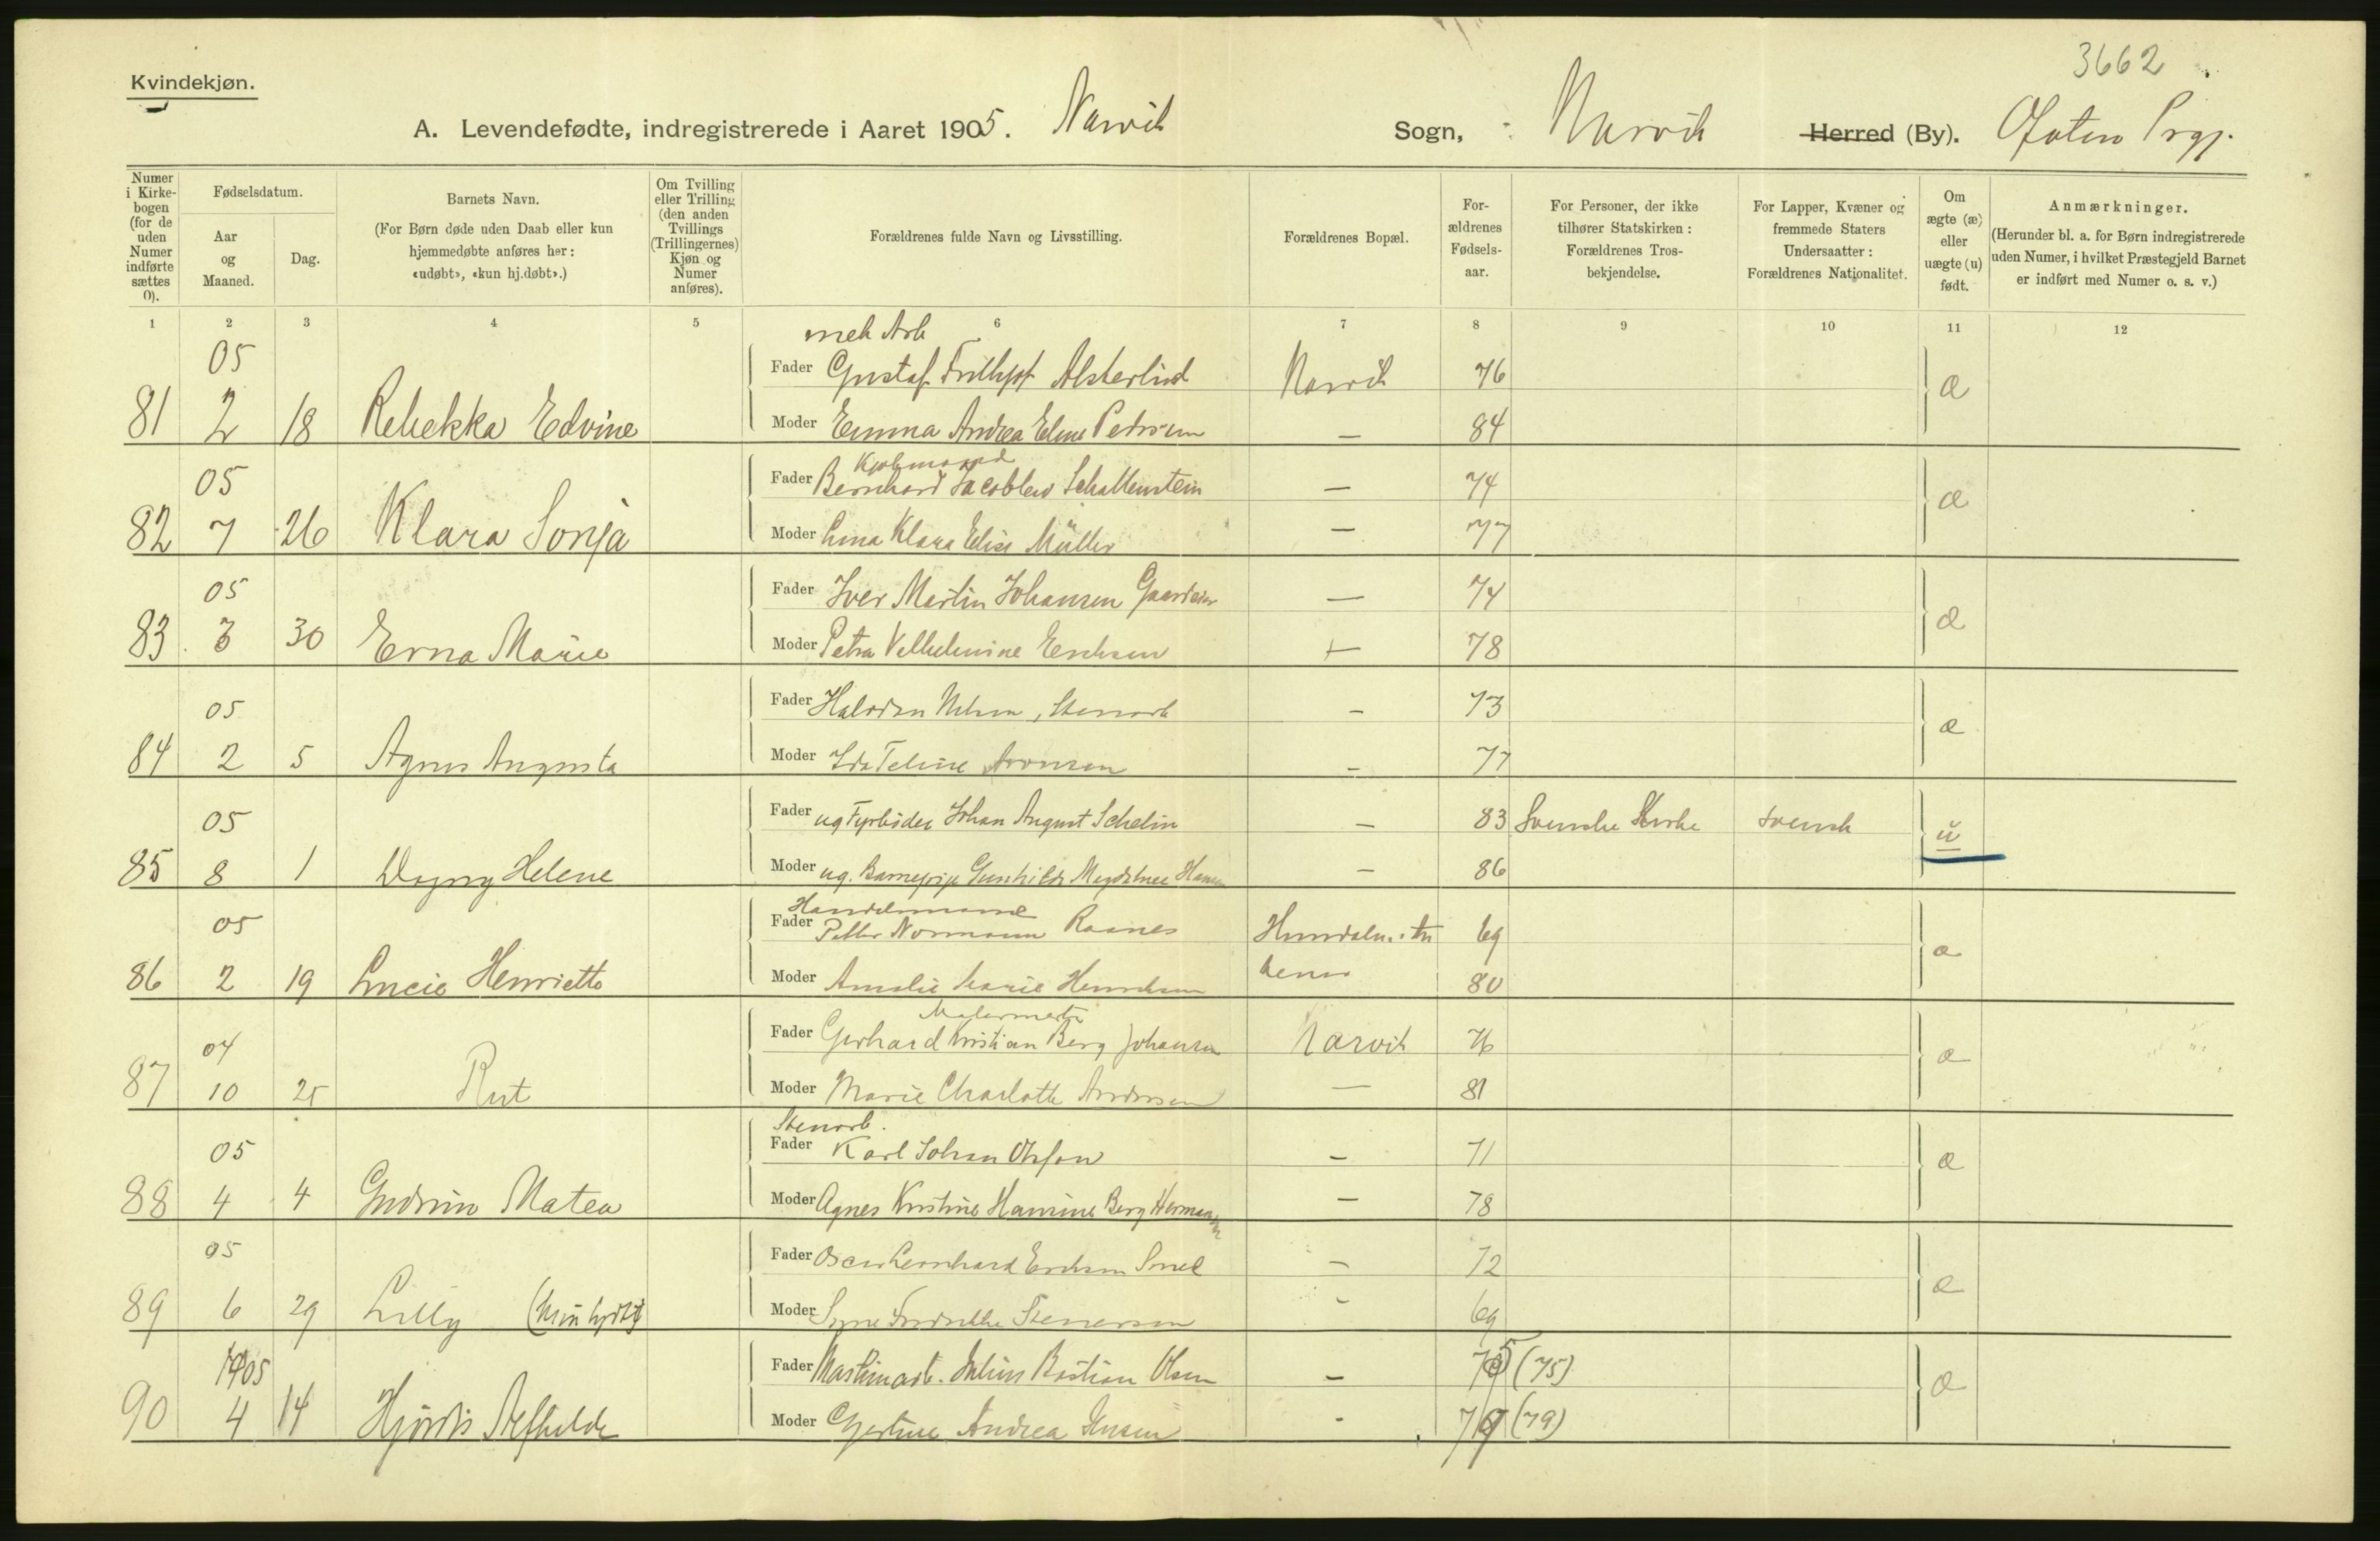 3662
Kvindekjøn.
A. Levendefødte, indregistrerede i Aaret 1905. Narvik Sogn, Narvik Herred (By). Ofoten Prgj.
Numer i Kirkebogen (for de uden Numer indførte sættes 0).
Fødselsdatum.
Aar og Maaned.
Dag.
Barnets Navn.
(For Børn døde uden Daab eller kun hjemmedøbte anføres her: «udøbt», «kun hj.døbt».)
Om Tvilling eller Trilling (den anden Tvillings (Trillingernes) Kjøn og Numer anføres).
Forældrenes fulde Navn og Livsstilling.
Forældrenes Bopæl.
Forældrenes Fødselsaar.
For Personer, der ikke tilhører Statskirken: Forældrenes Trosbekjendelse.
For Lapper, Kvæner og fremmede Staters Undersaatter: Forældrenes Nationalitet.
Om ægte (æ) eller uægte (u) født.
Anmærkninger.
(Herunder bl. a. for Børn indregistrerede uden Numer, i hvilket Præstegjeld Barnet er indført med Numer o. s. v.)
1 2 3 4 5 6 7 8 9 10 11 12
mek Arb
05 Fader Gustaf Frithjof Alsterlind Narvik 76 æ
81 2 18 Rebekka Edvine Moder Emma Andrea Eline Pedersen — 84
Kjøbmand
05 Fader Bernhard Jacoblew Schattenstein — 74 æ
82 7 26 Klara Sonja Moder Klara Elise Müller — 77
05 Fader Iver Martin Johansen — 74 æ
83 3 30 Erna Marie Moder Petra Vilhelmine Erichsen — 78
05 Fader Halvdan Nilsen, Stenarb — 73 æ
84 2 5 Agnes Augusta Moder Ida Aronsen — 77
05 Fader ug Fyrbøder Johan August Schelin — 83 Svenske Kirke svensk u
85 8 1 Dagny Helene Moder ug. Barnepige Gunhild Magdalene Hansen — 86
Handelsmand
05 Fader Petter Normann Raanes 69 æ
86 2 19 Lucie Henriette Moder Amalie Marie 80
Malermester
04 Fader Gerhard Kristian Berg Johansen Narvik 76 æ
87 10 25 Rut Moder Marie Charlotte Andersen — 81
Stenarb.
05 Fader Karl Johan Olsson — 71 æ
88 4 4 Gudrun Matea Moder Agnes Kristine Hansine Berg Hermansen — 78
05 Fader Oscar Bernhard Erichsen — 72 æ
89 6 29 Lilly (kun hjdbt) Moder - 69
1905 Fader Maskinarb. Julius Bastian Olsen — 75 (75) æ
90 4 14 Hjørdis Alfhilde Moder Gjertine Andrea Jensen - 79 (79)